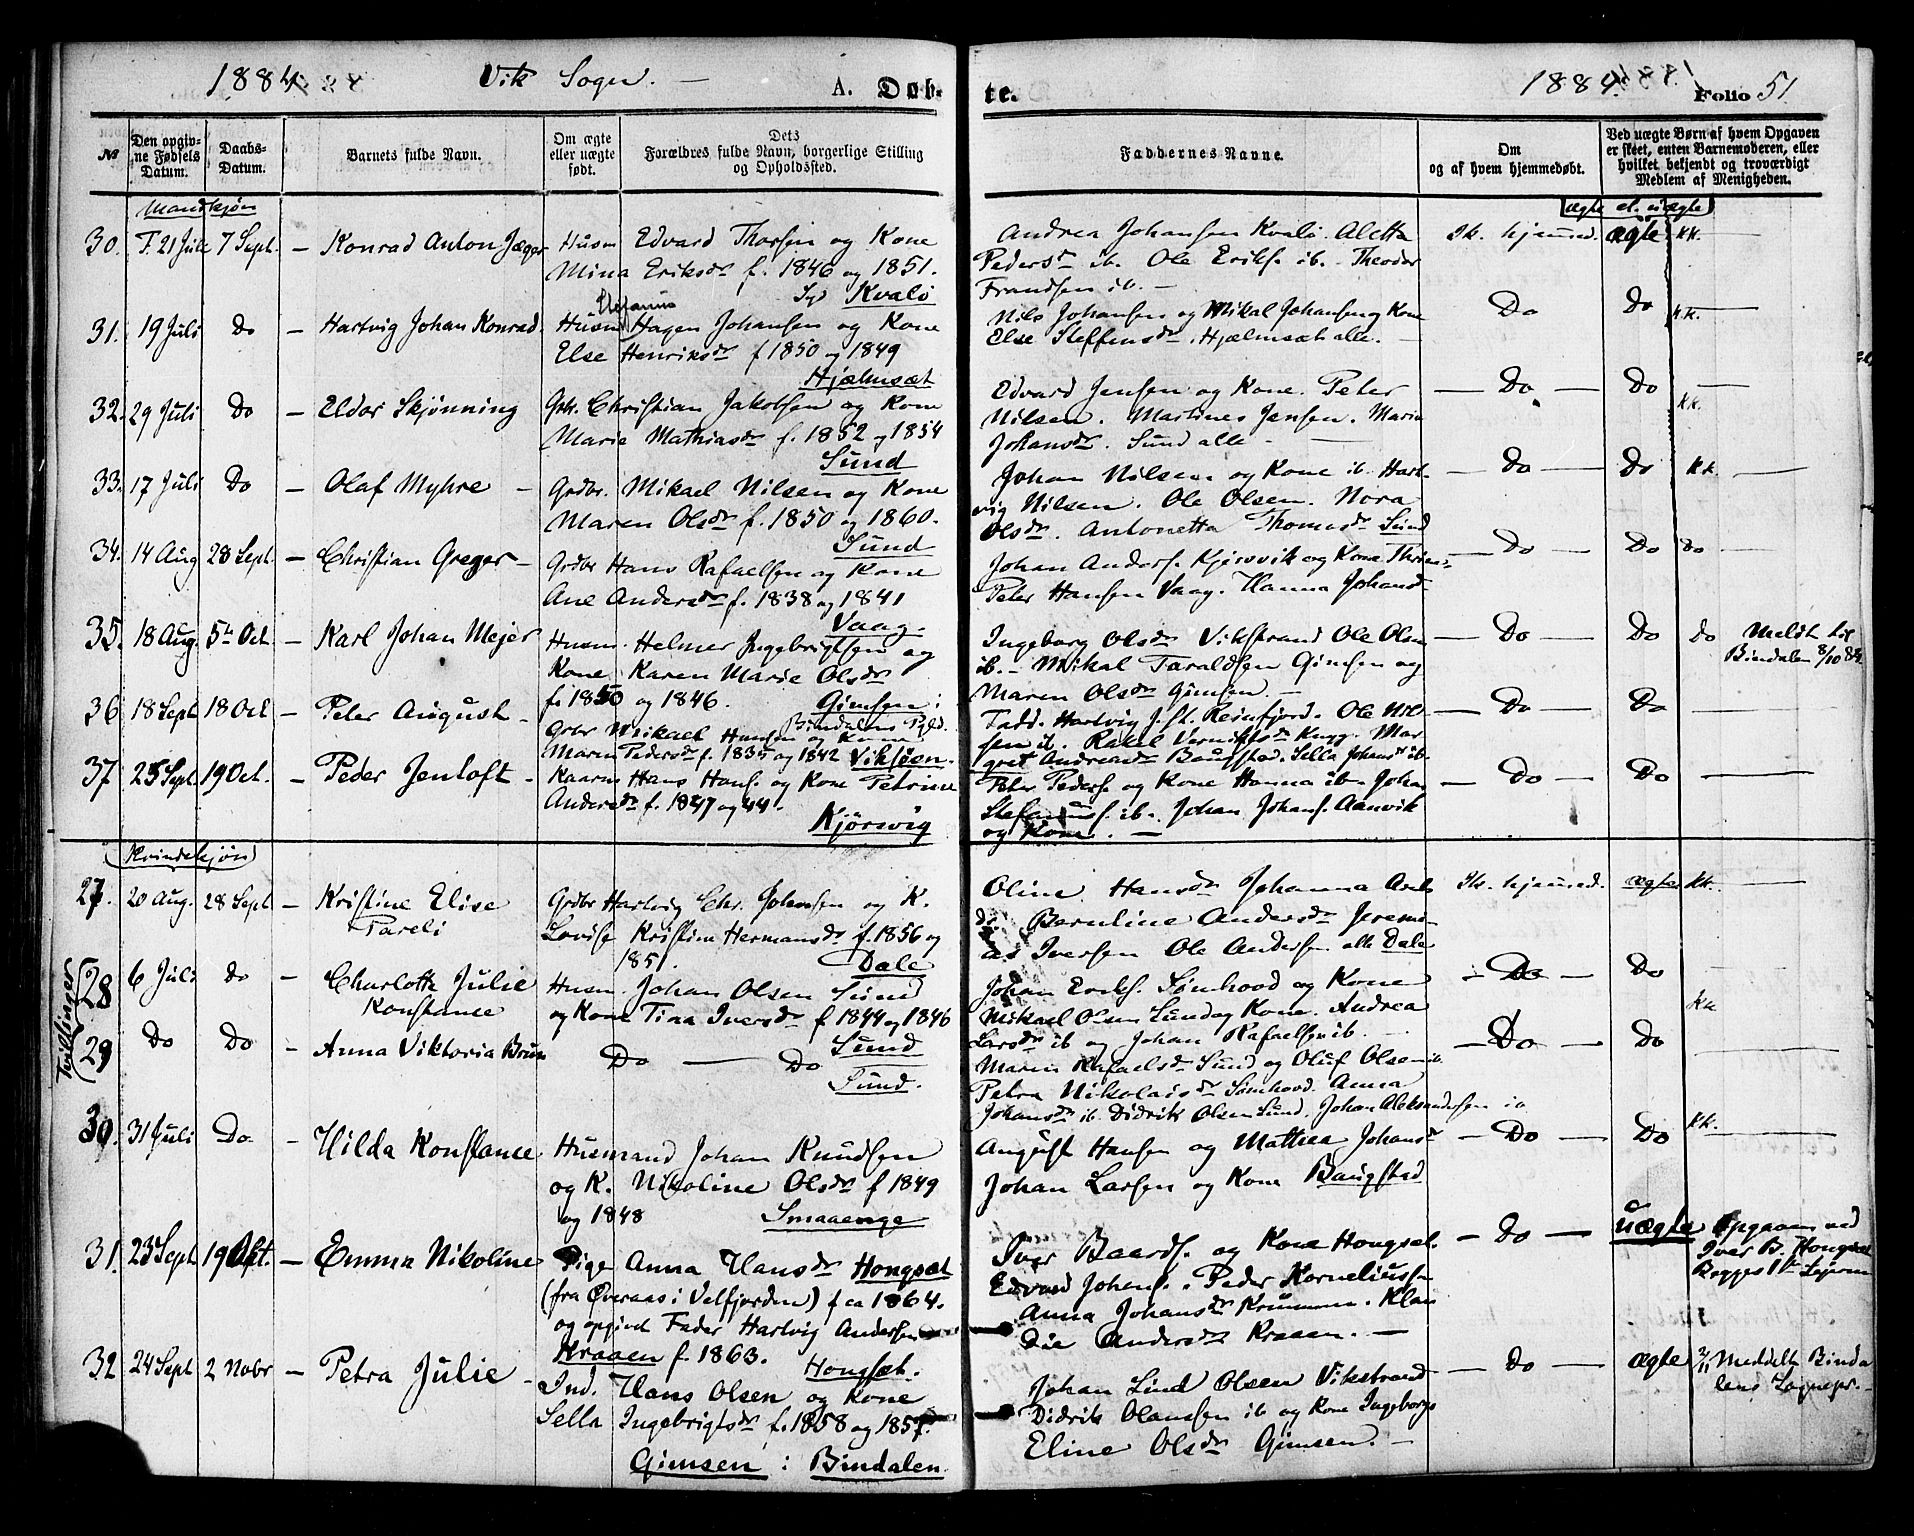 1884. Vik Sogn. —
A. Døb-
№
Den opgiv-
ne Fødsels
Datum.
Daabs-
Datum.
Barnets fulde Navn.
Om ægte
eller uægte
født.
Dets
Forældres fulde Navn, borgerlige Stilling
og Opholdssted.
Mandkjøn
30. F. 21 Juli 7 Sept. — Konrad Anton Jæger Husm Edvard Thorsen og Kone
Mina Eriksdr f. 1846 og 1851.
Kvalø
31. 19 Juli Do — Hartvig Johan Konrad Husm Hagen Johansen og Kone
Else Henriksdr f 1850 og 1849
Hjælmsæt
32. 29 Juli Do — Eldor Skjønning Christian Jakobsen og Kone
Marie Mathiasdr f. 1852 og 1854
Sund
33. 17 Juli Do — Olaf Myhre — Grdbr. Mikael Nilsen og Kone
Maren Olsdr f. 1850 og 1860.
Sund
34. 14 Aug 28 Sept — Christian Greger — Grdbr Hans Rafaelsen og Kone
Ane Andersdr f. 1838 og 1841
Vaag.
35. 18 Aug. 5te Oct. — Karl Johan Mejer Husm. Helmer Ingebrigtsen og
Kone Karen Marie Olsdr
f. 1850 og 1846. Gimsen i
Bindalens Pgld.
36 18 Sept 18 Oct — Peter August — Grbr Mikael Hansen og Kone
Maren Pedersdr f. 1835 og 1842 Viksøen.
37. 25 Sept. 19 Oct. — Peder Jentoft — Kaarm Hans Hans. og Kone Petrine
Andersdr f. 1847 og 44.
Kjørsvig
Kvindekjøn
27. 20 Aug. 28 Sept — Kristine Elise
Pareli
Grdbr Hartvig Chr. Johnsen og K.
Lovise Kristine Hermansdr f. 1856 og
1851. Dale
Tvillinger
28 6 Juli do — Charlotte Julie
Konstance
Husm. Johan Olsen Sund
og Kone Tina Iversdr f 1844 og 1846
Sund
29 Do Do — Anna Viktoria Brun Do — Do
Sund.
30. 31 Juli Do — Hilda Konstance Husmand Johan Knudsen
og K. Nikoline Olsdr f 1849
og 1848 Smaaenge
31. 23 Sept 19 Okt. — Emma Nikoline Pige Anna Hansdr Hongsæt
(fra Øveraas i Velfjorden) f ca 1864.
og opgivet Fader Hartvig Andersen
Kraaen f. 1863. Hongsæt.
32 24 Sept 2 Novbr — Petra Julie — Ind. Hans Olsen og Kone
Sella Ingebrigtsdr f. 1858 og 1857.
Gimsen i Bindalen.
te. 1884. Folio 51.
Faddernes Navne.
Om
og af hvem hjemmedøbt.
Ved uægte Børn af hvem Opgaven
er skeet, enten Barnemoderen, eller
hvilket bekjendt og troværdigt
Medlem af Menigheden.
ægte el. uægte
Andrea Johansen Kvalø. Aletta Ik. hjemmed. ægte k.k. —
Pedersdr ib. Ole Eriks. ib. Theodor
Frandsen ib. —
Nils Johansen og Mikal Johansen og Kone Do Do k.k. —
Else Steffensdr. Hjælmsæt alle. —
Edvard Jensen og Kone. Peter — Do — Do k.k. —
Nilsen. Martines Jensen. Maria
Johansdr. Sund alle —
Johan Nilsen og Kone ib. Hart- — Do — Do k.k. —
vig Nilsen. Ole Olsen. Nora
Olsdr. Antonetta Thomasdr Sund
Johan Anders. Kjørsvik og Kone — Do — Do Do —
Peter Hansen Vaag. Hanna Johansd
Ingeborg Olsdr Vikstrand Ole Olsen — Do — Do Do Meldt til
Bindalen 8/10 84.
ib. — Mikal Taraldsen Gimsen og
Maren Olsdr Gimsen. —
Fadd. Hartvig J. St. Reinfjord. Ole Nil- — Do — Do —
sen ib. Rakel Kygg. Mar-
gret Andreasdr Baugstad. Sella Johansdr ib.
Peter Peders. og Kone Hanna ib. Johan — Do — Do —
Stefanus. ib. Johan Johans. Aanvik
og Kone. —
Oline Hansdr Johanna Ik. hjemmed. ægte k.k. —
Bernline Andersdr Jeremi-
as Iversen Ole Andersen alle Dale
Johan Eriks. Sømhovd og Kone — Do — Do —
Mikael Olsen Sund og Kone. Andrea
Larsdr ib og Johan Rafaelsen ib. — Do — Do —
Maren Rafaelsdr Sund og Oluf Olsen ib.
Petra Nikolaisdr Sømhovd. Anna
Johansdr ib Didrik Olsen Sund. Johan Aleksandersen ib
August Hansen og Mathea Johansdr — Do — Do k.k. —
Johan Larsen og Kone Baugstad
Iver Baards. og Kone Hongset. — Do — uægte Opgaven ved
Iver B. Hongset
Edvard Johans. Peder Korneliussen
Anna Johansdr Krummen. Klau
Die Andersdr Kraaen. —
Johan Lind Olsen Vikstrand — Do — ægte 3/11 Meddelt Binda
lens Sognepr. —
Didrik Olaussen ib og Kone Ingeborg
Eline Olsdr Gimsen. —